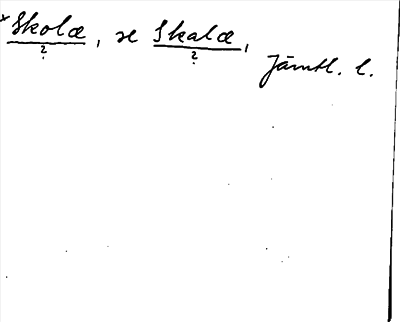 *Skolæ, se Skalæ,
? ?
Jämtl. l.